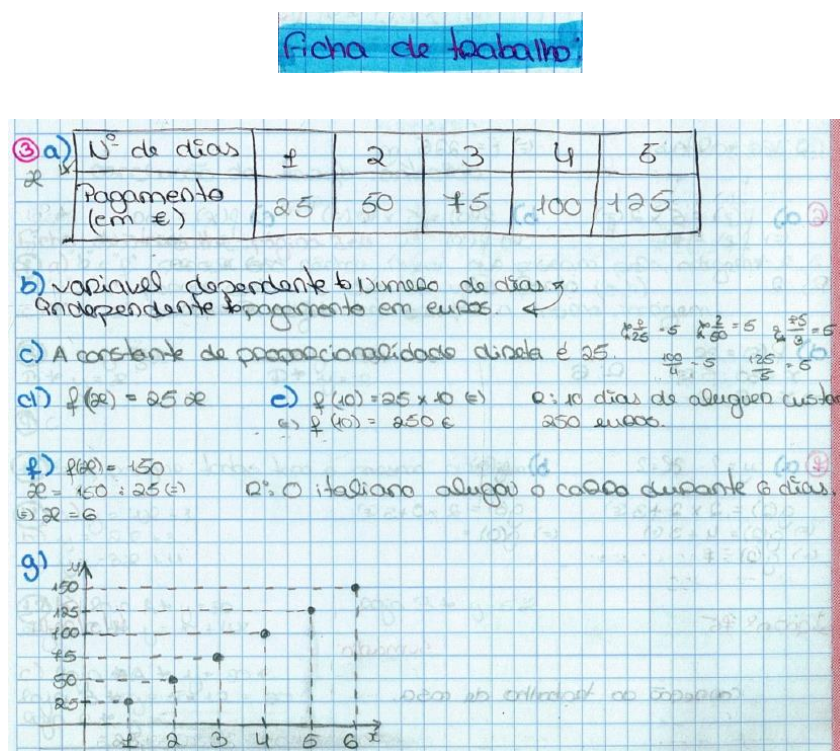 Ficha de trabalho:
③ a) Nº de dias 1 2 3 4 5
x
Pagamento (em €) 25 50 75 100 125
b) variavel dependente → Numero de dias
independente → pagamento em euros.
c) A constante de proporcionalidade direta é 25.
100/4 = 5 125/5 = 5
d) f(x) = 25x e) f(10) = 25 x 10 (=) R: 10 dias de aluguer custa
(=) f(10) = 250 € 250 euros.
f) f(x) = 150
x = 150 : 25 (=) R: O italiano alugou o carro durante 6 dias.
(=) x = 6
g)
y
150
125
100
75
50
25
1 2 3 4 5 6 x